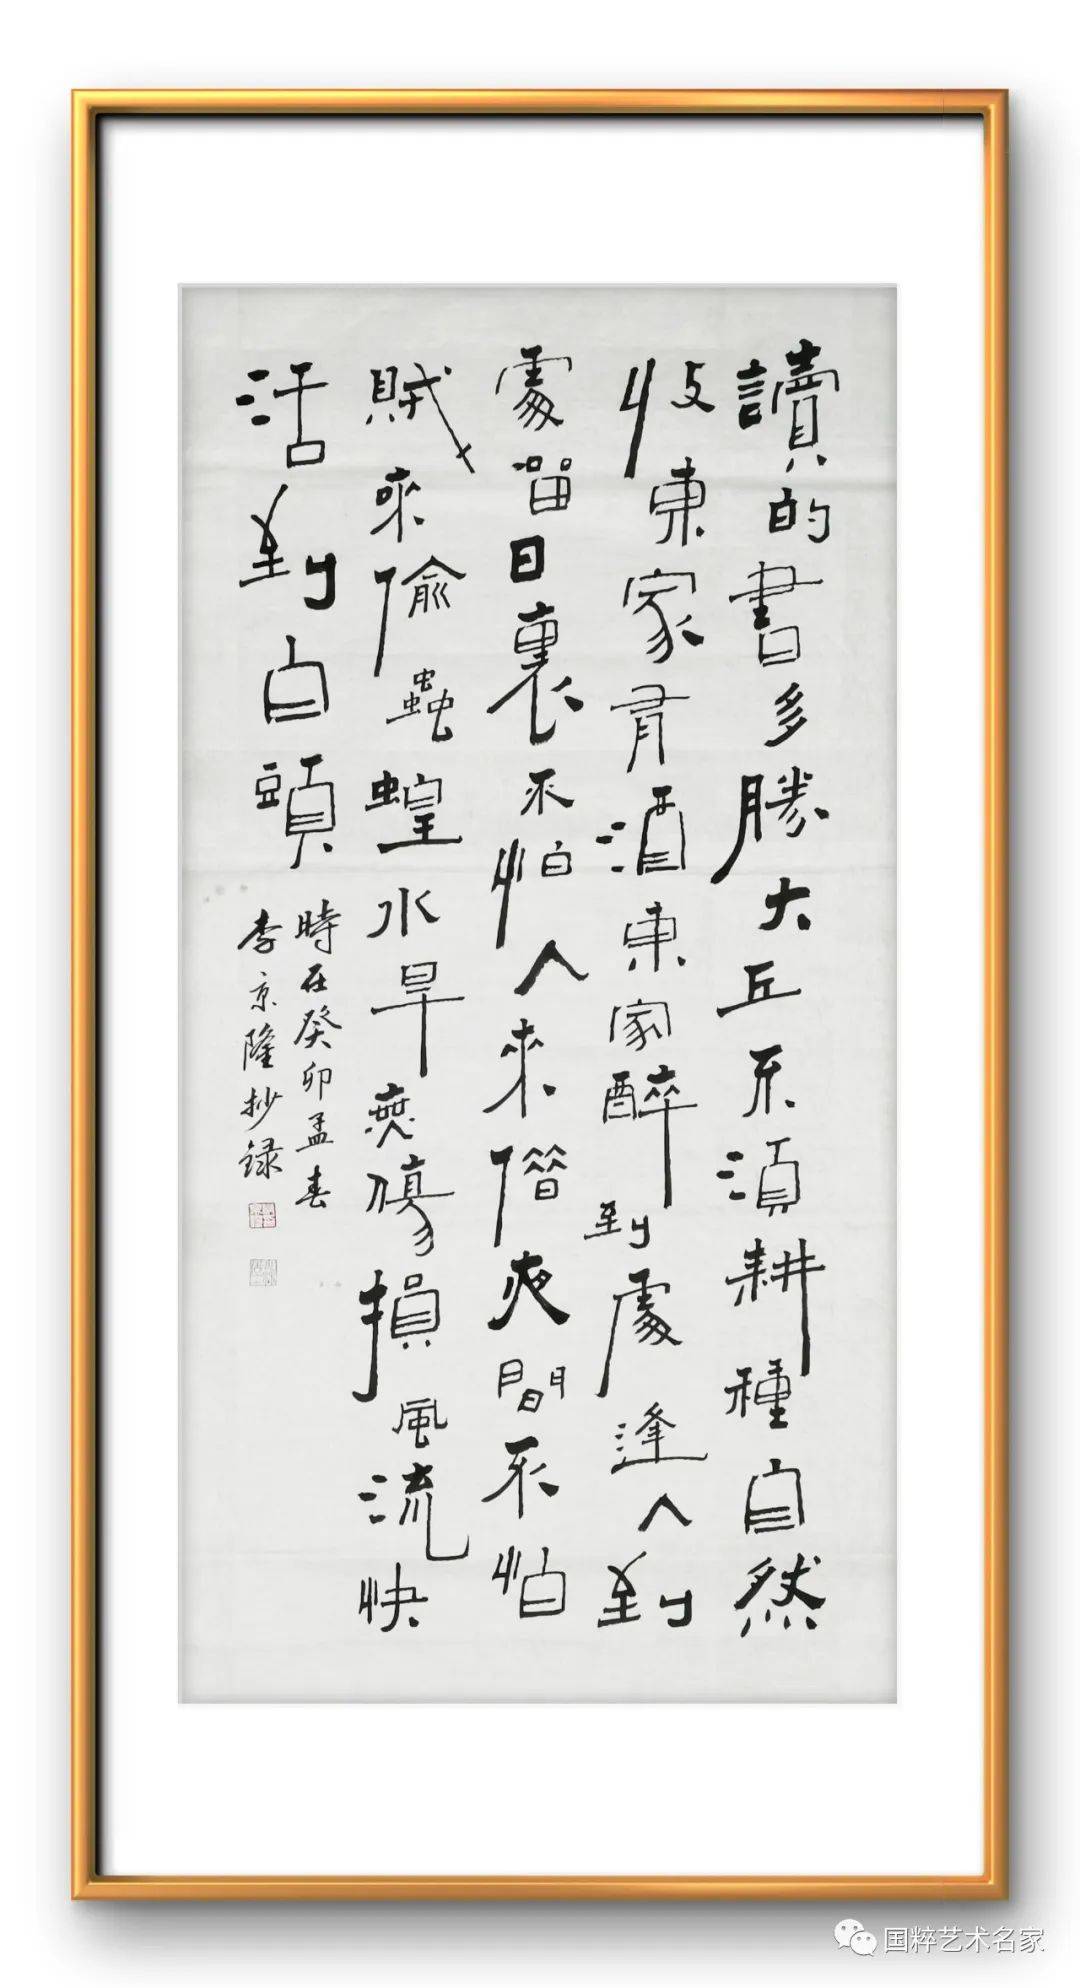 讀的書多勝大丘不須耕種自然
收東家有酒東家醉到處逢人到
處留日裏不怕人來借夜間不怕
賊來偷蟲蝗水旱無傷損風流快
活到白頭
時在癸卯孟春
李京隆抄録
国粹艺术名家